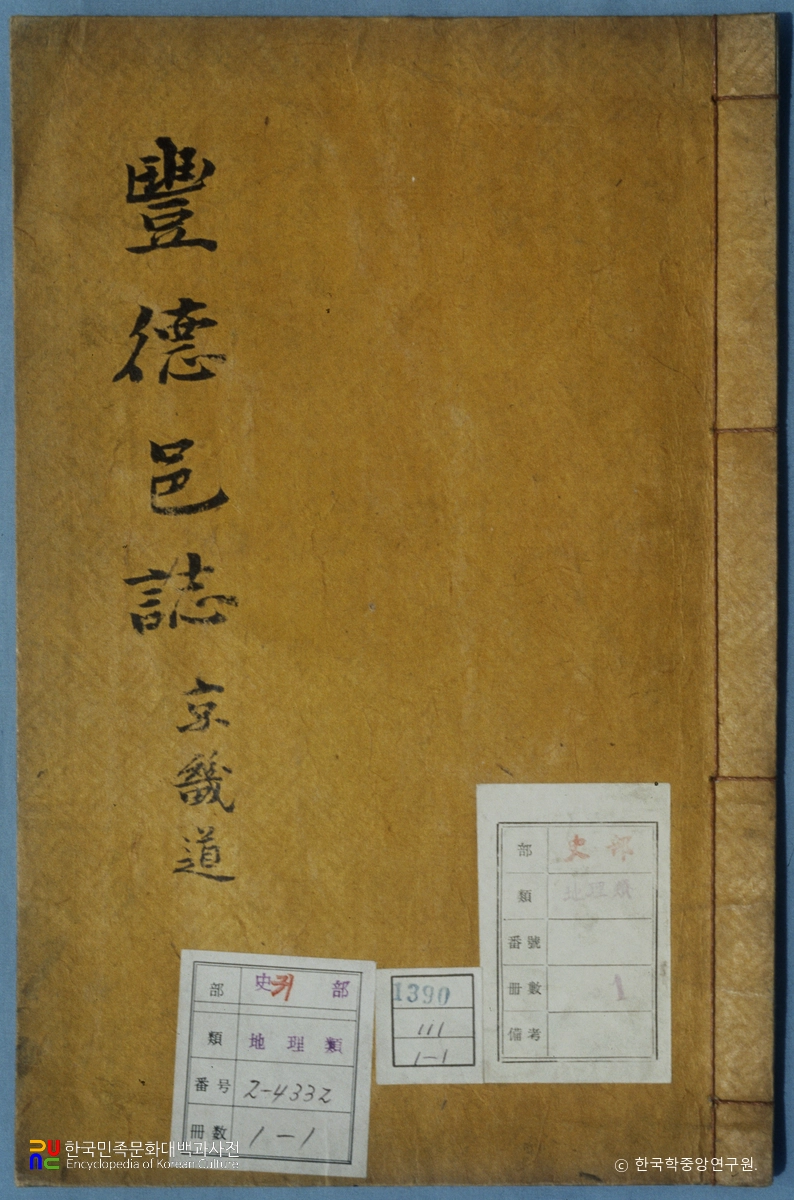 豐德邑誌 京畿道
部 史 部
類 地理類
番號
冊數 1
備考
1390
111
1-1
部 史 귀 部
類 地理類
番号 2-4332
冊數 1-1
한국민족문화대백과사전
Encyclopedia of Korean Culture
© 한국학중앙연구원.